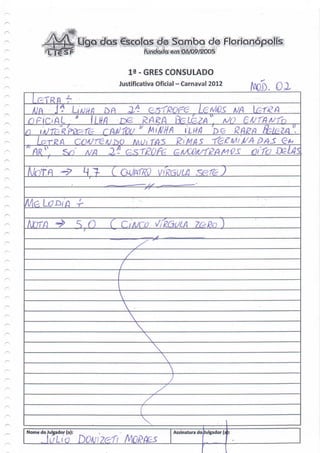 LIESF
Liga das Escolas de Samba de Florianópolis
fundada em 06/09/2005
1ª - GRES CONSULADO
Justificativa Oficial – Carnaval 2012
MOD. 02
LETRA ÷
NA 1ª LINHA DA 2ª ESTROFE LEMOS NA LETRA
OFICIAL, " ILHA DE RARA BELEZA", NO ENTANTO
O INTERPRETE CANTOU " MINHA ILHA DE RARA BELEZA".
LETRA CONTENDO MUITAS RIMAS TERMINADAS EM
"AR", SÓ NA 2ª ESTROFE ENCONTRAMOS OITO DELAS
NOTA → 4,7 ( QUATRO VÍRGULA SETE )
MELODIA ÷
NOTA → 5,0 ( CINCO VÍRGULA ZERO )
Nome do Julgador (a):
JULIO DONIZETI MORAES
Assinatura do Julgador (a):